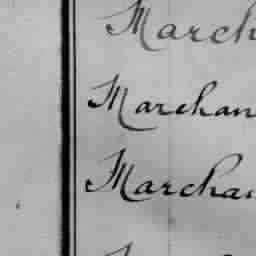 March
Marchan
Marchan